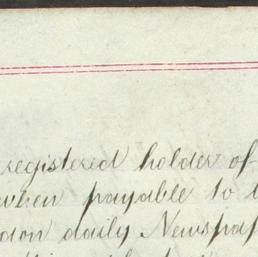 registered holder of
when payable to
don daily Newspap